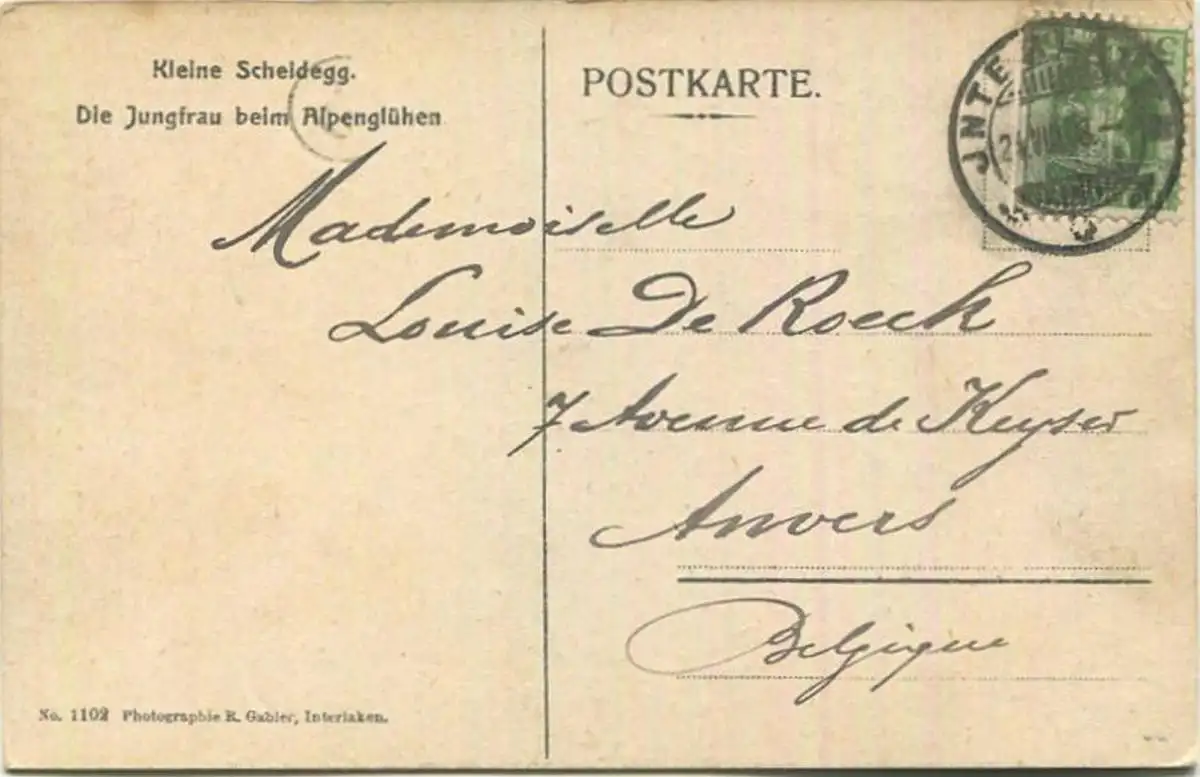 Kleine Scheidegg.
Die Jungfrau beim Alpenglühen
POSTKARTE.
JNTE
Mademoiselle
Louise De Roeck
7 Avenue de Keyser
Anvers
Belgique
No. 1102 Photographie R. Gabler, Interlaken.